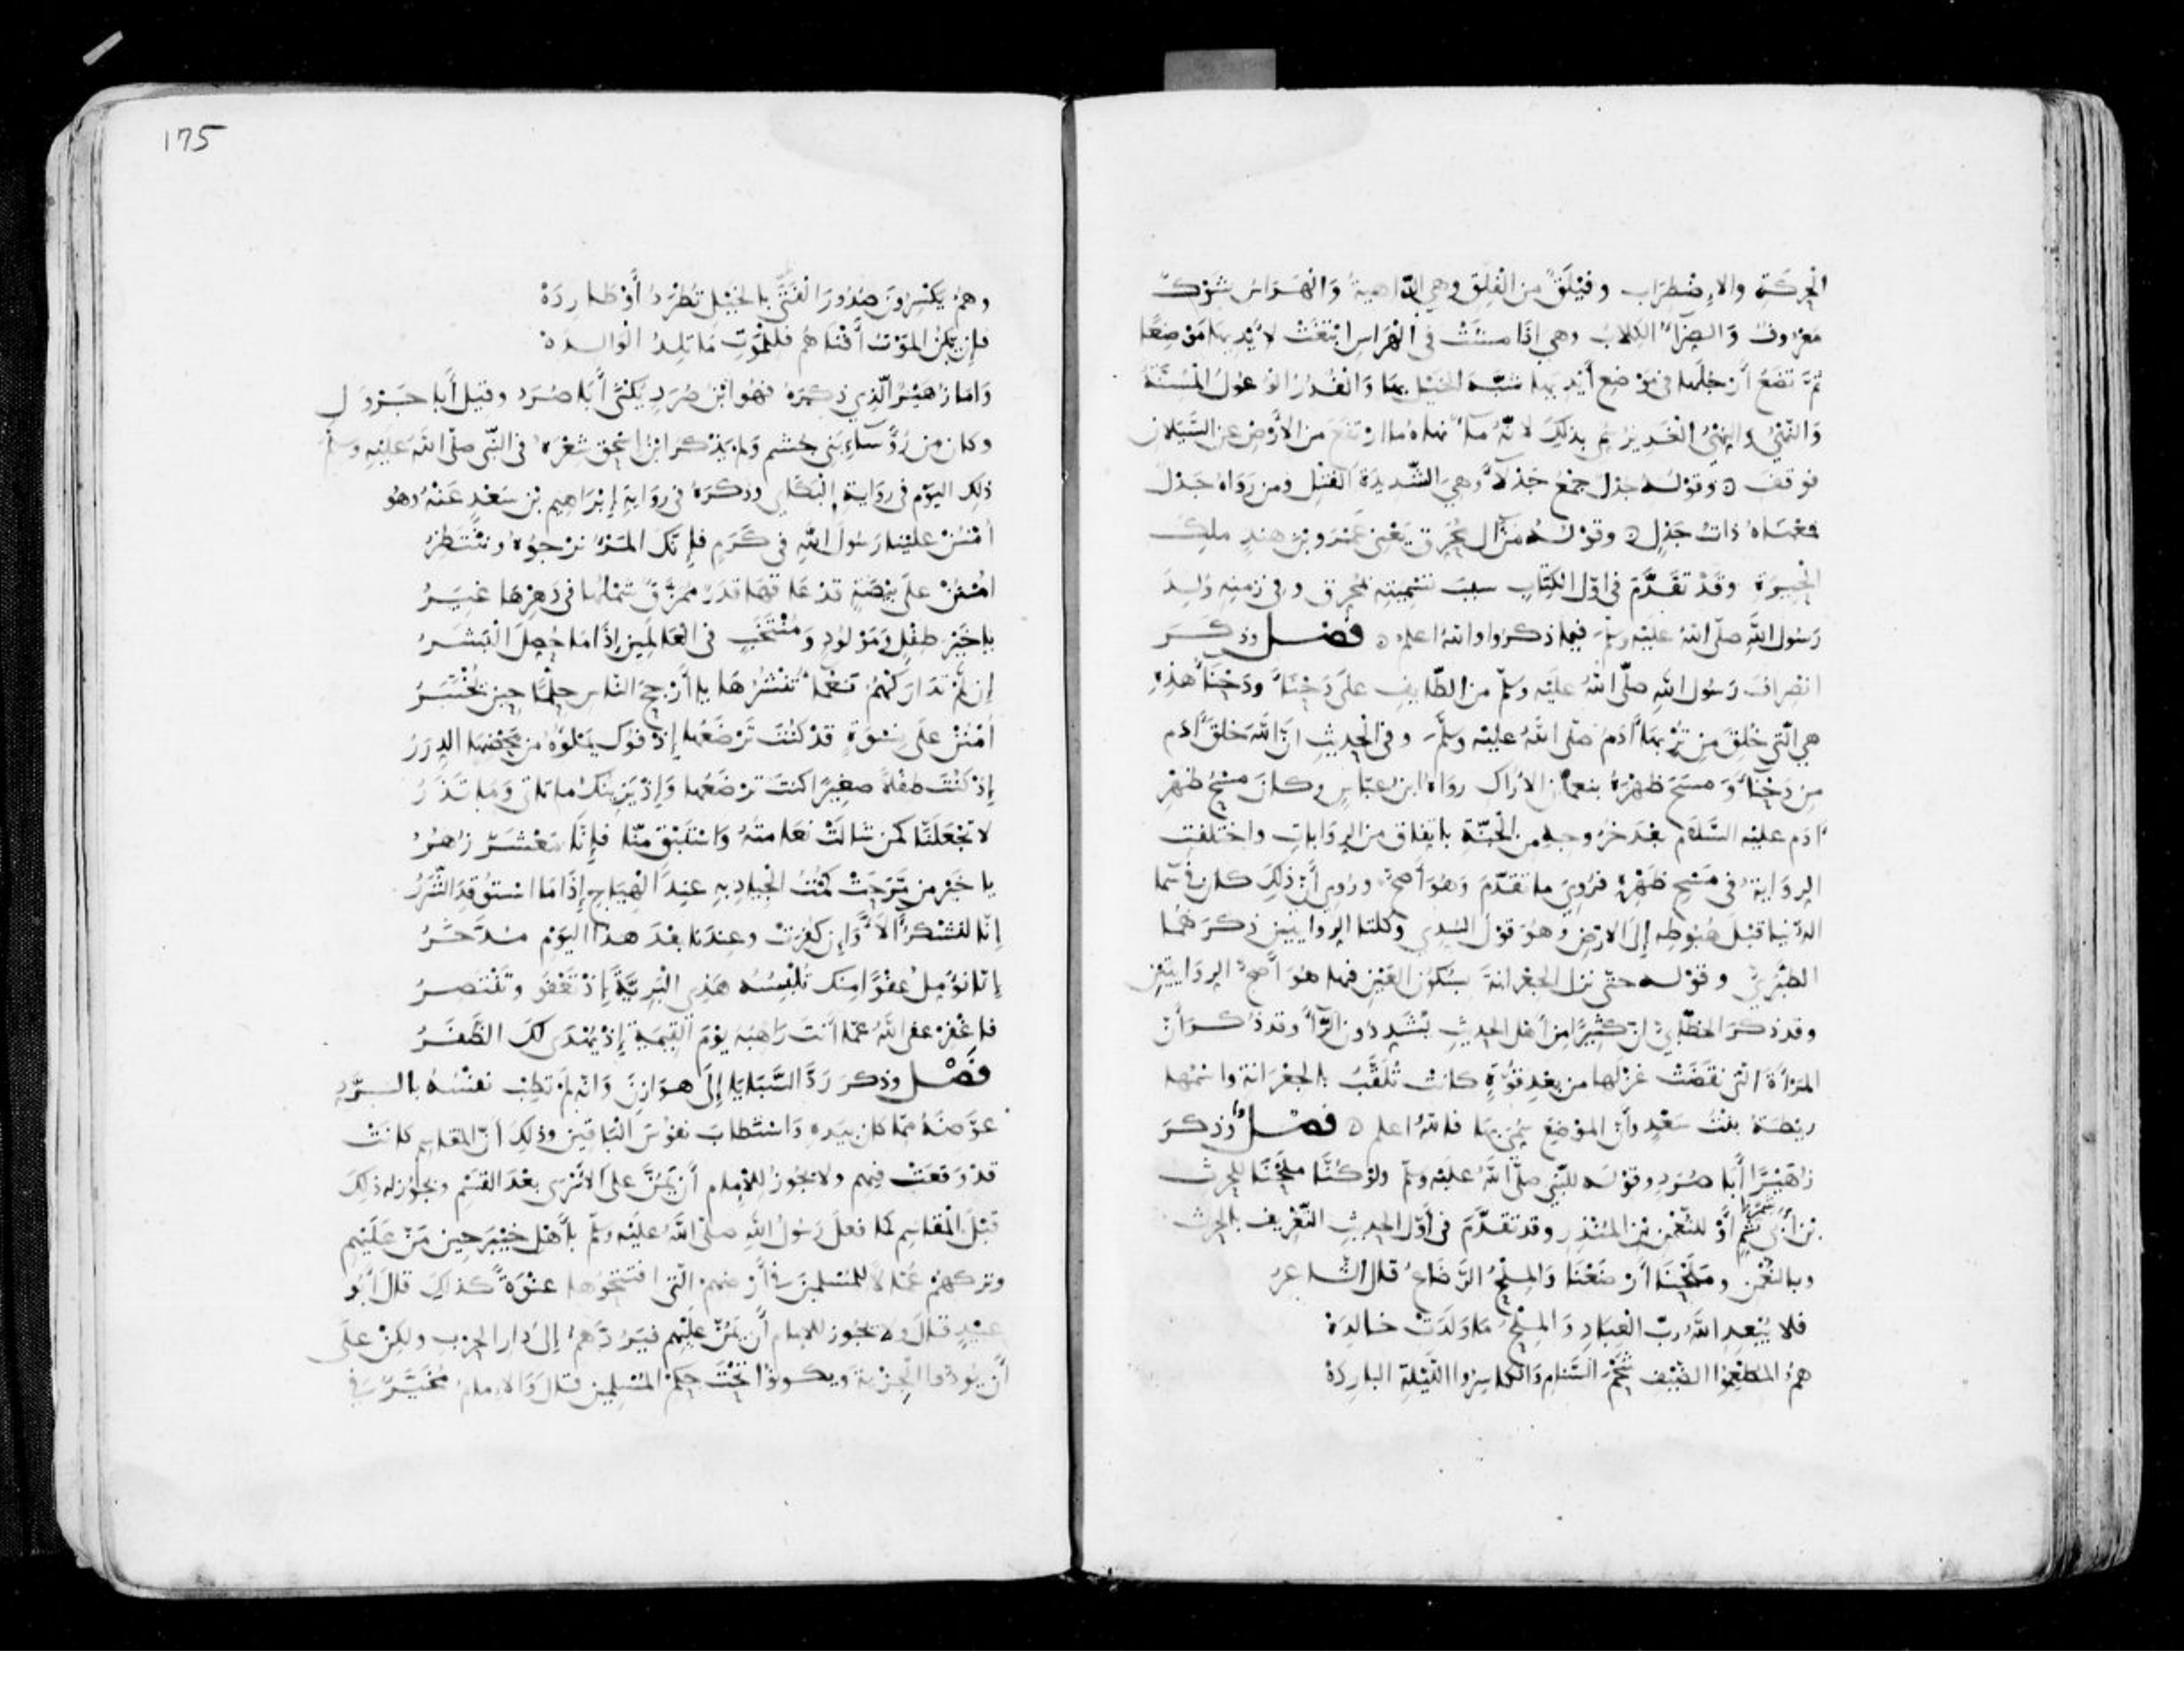 الحركة والاضطراب وفيلق من الفلق وهي الداهية والهراس شوك
معروف والضراء الكلاب وهي إذا مشت في الهراس ابتغت لأيديها موضعا
ثم تضع أرجلها في موضع أيديها شبه الخيل بها والفدر الوعول المسنة
والنهي والنهي الغدير سمي بذلك لأنه ماء نهاه ما ارتفع من الأرض عن السيلان
فوقف ه وقوله جدل جمع جدلاء وهي الشديدة الفتل ومن رواه جدل
فمعناه ذات جدل ه وقوله من آل محرق يعني عمرو بن هند ملك
الحيرة وقد تقدم في أول الكتاب سبب تسميته بمحرق وفي زمنه ولد
رسول الله صلى الله عليه وسلم فيما ذكروا والله اعلم ه فصل وذكر
انصراف رسول الله صلى الله عليه وسلم من الطايف على دحنا ودحنا هذه
هي التي خلق من تربها آدم صلى الله عليه وسلم وفي الحديث ان الله خلق آدم
من دحنا ومسح ظهره بنعمان الأراك رواه ابن عباس وكان مسح ظهر
آدم عليه السلام بعد خروجه من الجنة باتفاق من الروايات واختلفت
الرواية في مسح ظهره فروي ما تقدم وهو أصح وروي أن ذلك كان في سما
الدنيا قبل هبوطه إلى الارض وهو قول السدي وكلتا الروايتين ذكرهما
الطبري وقوله حتى نزل الجعرانة بسكون العين فيها هو أصح الروايتين
وقد ذكر الخطابي ان كثيرا من أهل الحديث يشددون الرآ وقد ذكر أن
المرأة التي نقضت غزلها من بعد قوة كانت تلقب بالجعرانة واسمها
ريطة بنت سعد وأن الموضع سمي بها فالله اعلم ه فصل وذكر
زهيرا أبا صرد وقوله للنبي صلى الله عليه وسلم ولو كنا ملحنا للحرث
بن أبي شمر أو للنعمن بن المنذر وقد تقدم في أول الحديث التعريف بالحرث
وبالنعمن وملحنا أرضعنا والملح الرضاع قال الشاعر
فلا يبعد الله رب العباد والملح ما ولدت خالدة
هم المطعموا الضيف شحم السنام والكاسروا الليلة الباردة
وهم يكسرون صدور القنى بالخيل تطرد أو طاردة
فإن يكن الموت أفناهم فللموت ما تلد الوالدة
واما زهير الذي ذكره فهو ابن صرد يكنى أبا صرد وقيل أبا جرول
وكان من رؤساء بني جشم ولم يذكر ابن اسحق شعره في النبي صلى الله عليه وسلم
ذلك اليوم في رواية البكاي وذكره في رواية إبراهيم بن سعد عنه وهو
أمنن علينا رسول الله في كرم فإنك المرء نرجوه وننتظر
امنن على بيضة قد عاقها قدر ممزق شملها في دهرها غير
يا خير طفل ومولود ومنتخب في العالمين إذا ما حصل البشر
إن لم تداركهم نعماء تنشرها يا أرجح الناس حلما حين يختبر
أمنن على نسوة قد كنت ترضعها إذ فوك يملوه من محضها الدرر
إذ كنت طفلا صغيرا كنت ترضعها وإذ يزينك ما تاتي وما تذر
لا تجعلنا كمن شالت نعامته واستبق منا فإنا معشر زهر
يا خير من مرحت كمت الجياد به عند الهياج إذا ما استوقد الشرر
إنا لنشكر آلاء وإن كفرت وعندنا بعد هذا اليوم مدخر
إنا نومل عفوا منك تلبسه هذي البرية إذ تعفو وتنتصر
فاغفر عفى الله عما أنت راهبه يوم القيمة إذ يهدى لك الظفر
فصل وذكر رد السبايا إلى هوازن وانه لم تطب نفسه بالرد
عوضه مما كان بيده واستطاب نفوس الباقين وذلك أن المقاسم كانت
قد وقعت فيهم ولا يجوز للإمام أن يمن على الأسرى بعد القسم ويجوز له ذلك
قبل المقاسم كما فعل رسول الله صلى الله عليه وسلم بأهل خيبر حين من عليهم
وتركهم عمالا للمسلمين في أرضهم التي افتتحوها عنوة كذلك قال أبو
عبيد قال ولا يجوز للامام أن يمن عليهم فيردهم إلى دار الحرب ولكن على
أن يودوا الجزية ويكونوا تحت حكم المسلمين قال والامام مخير في
175